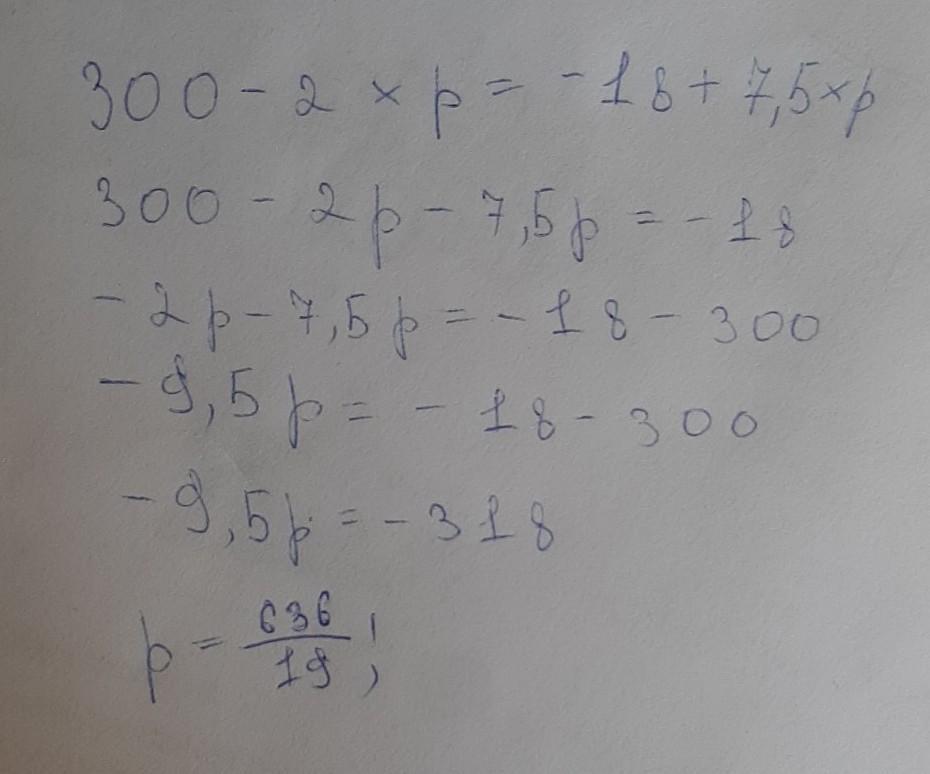 300 - 2 × p = -18 + 7,5 × p
300 - 2p - 7,5p = -18
-2p - 7,5p = -18 - 300
-9,5p = -18 - 300
-9,5p = -318
p = 636/19;